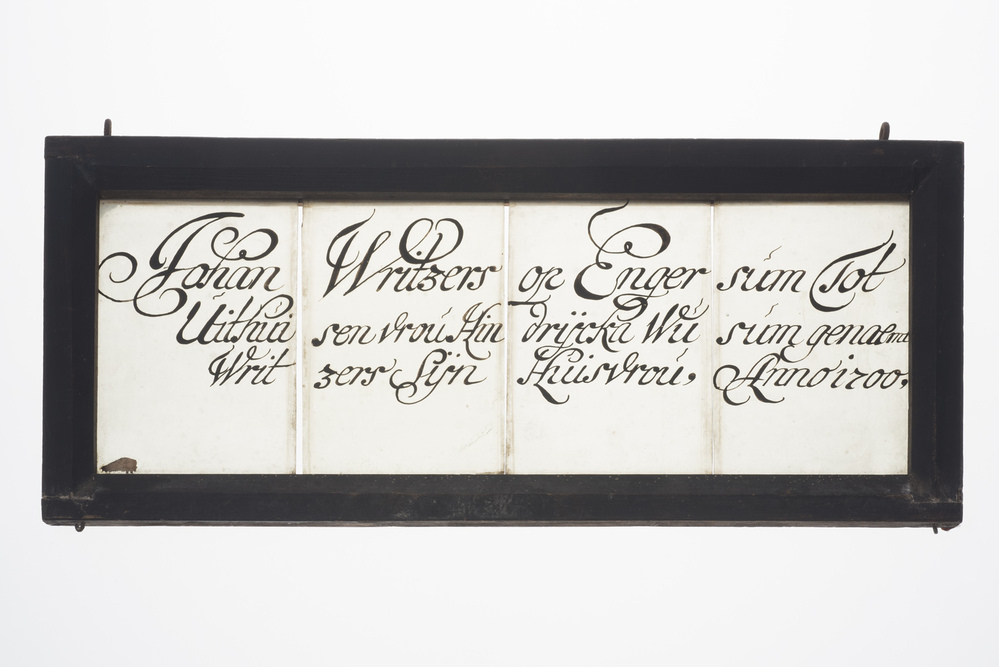 Johan Writzers op Engersúm Tot
Uithúisen vroú Hindrijcka Wúsúm genaemt
Writzers Sijn Húisvroú, Anno 1700,